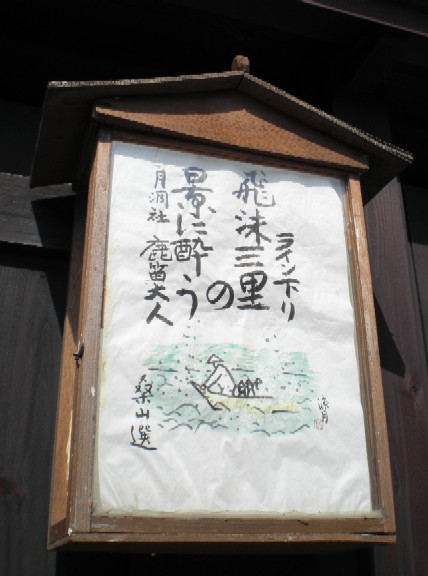 ライン下り
飛沫三里の
景に酔う
月洞社 鹿笛大人
桑山選